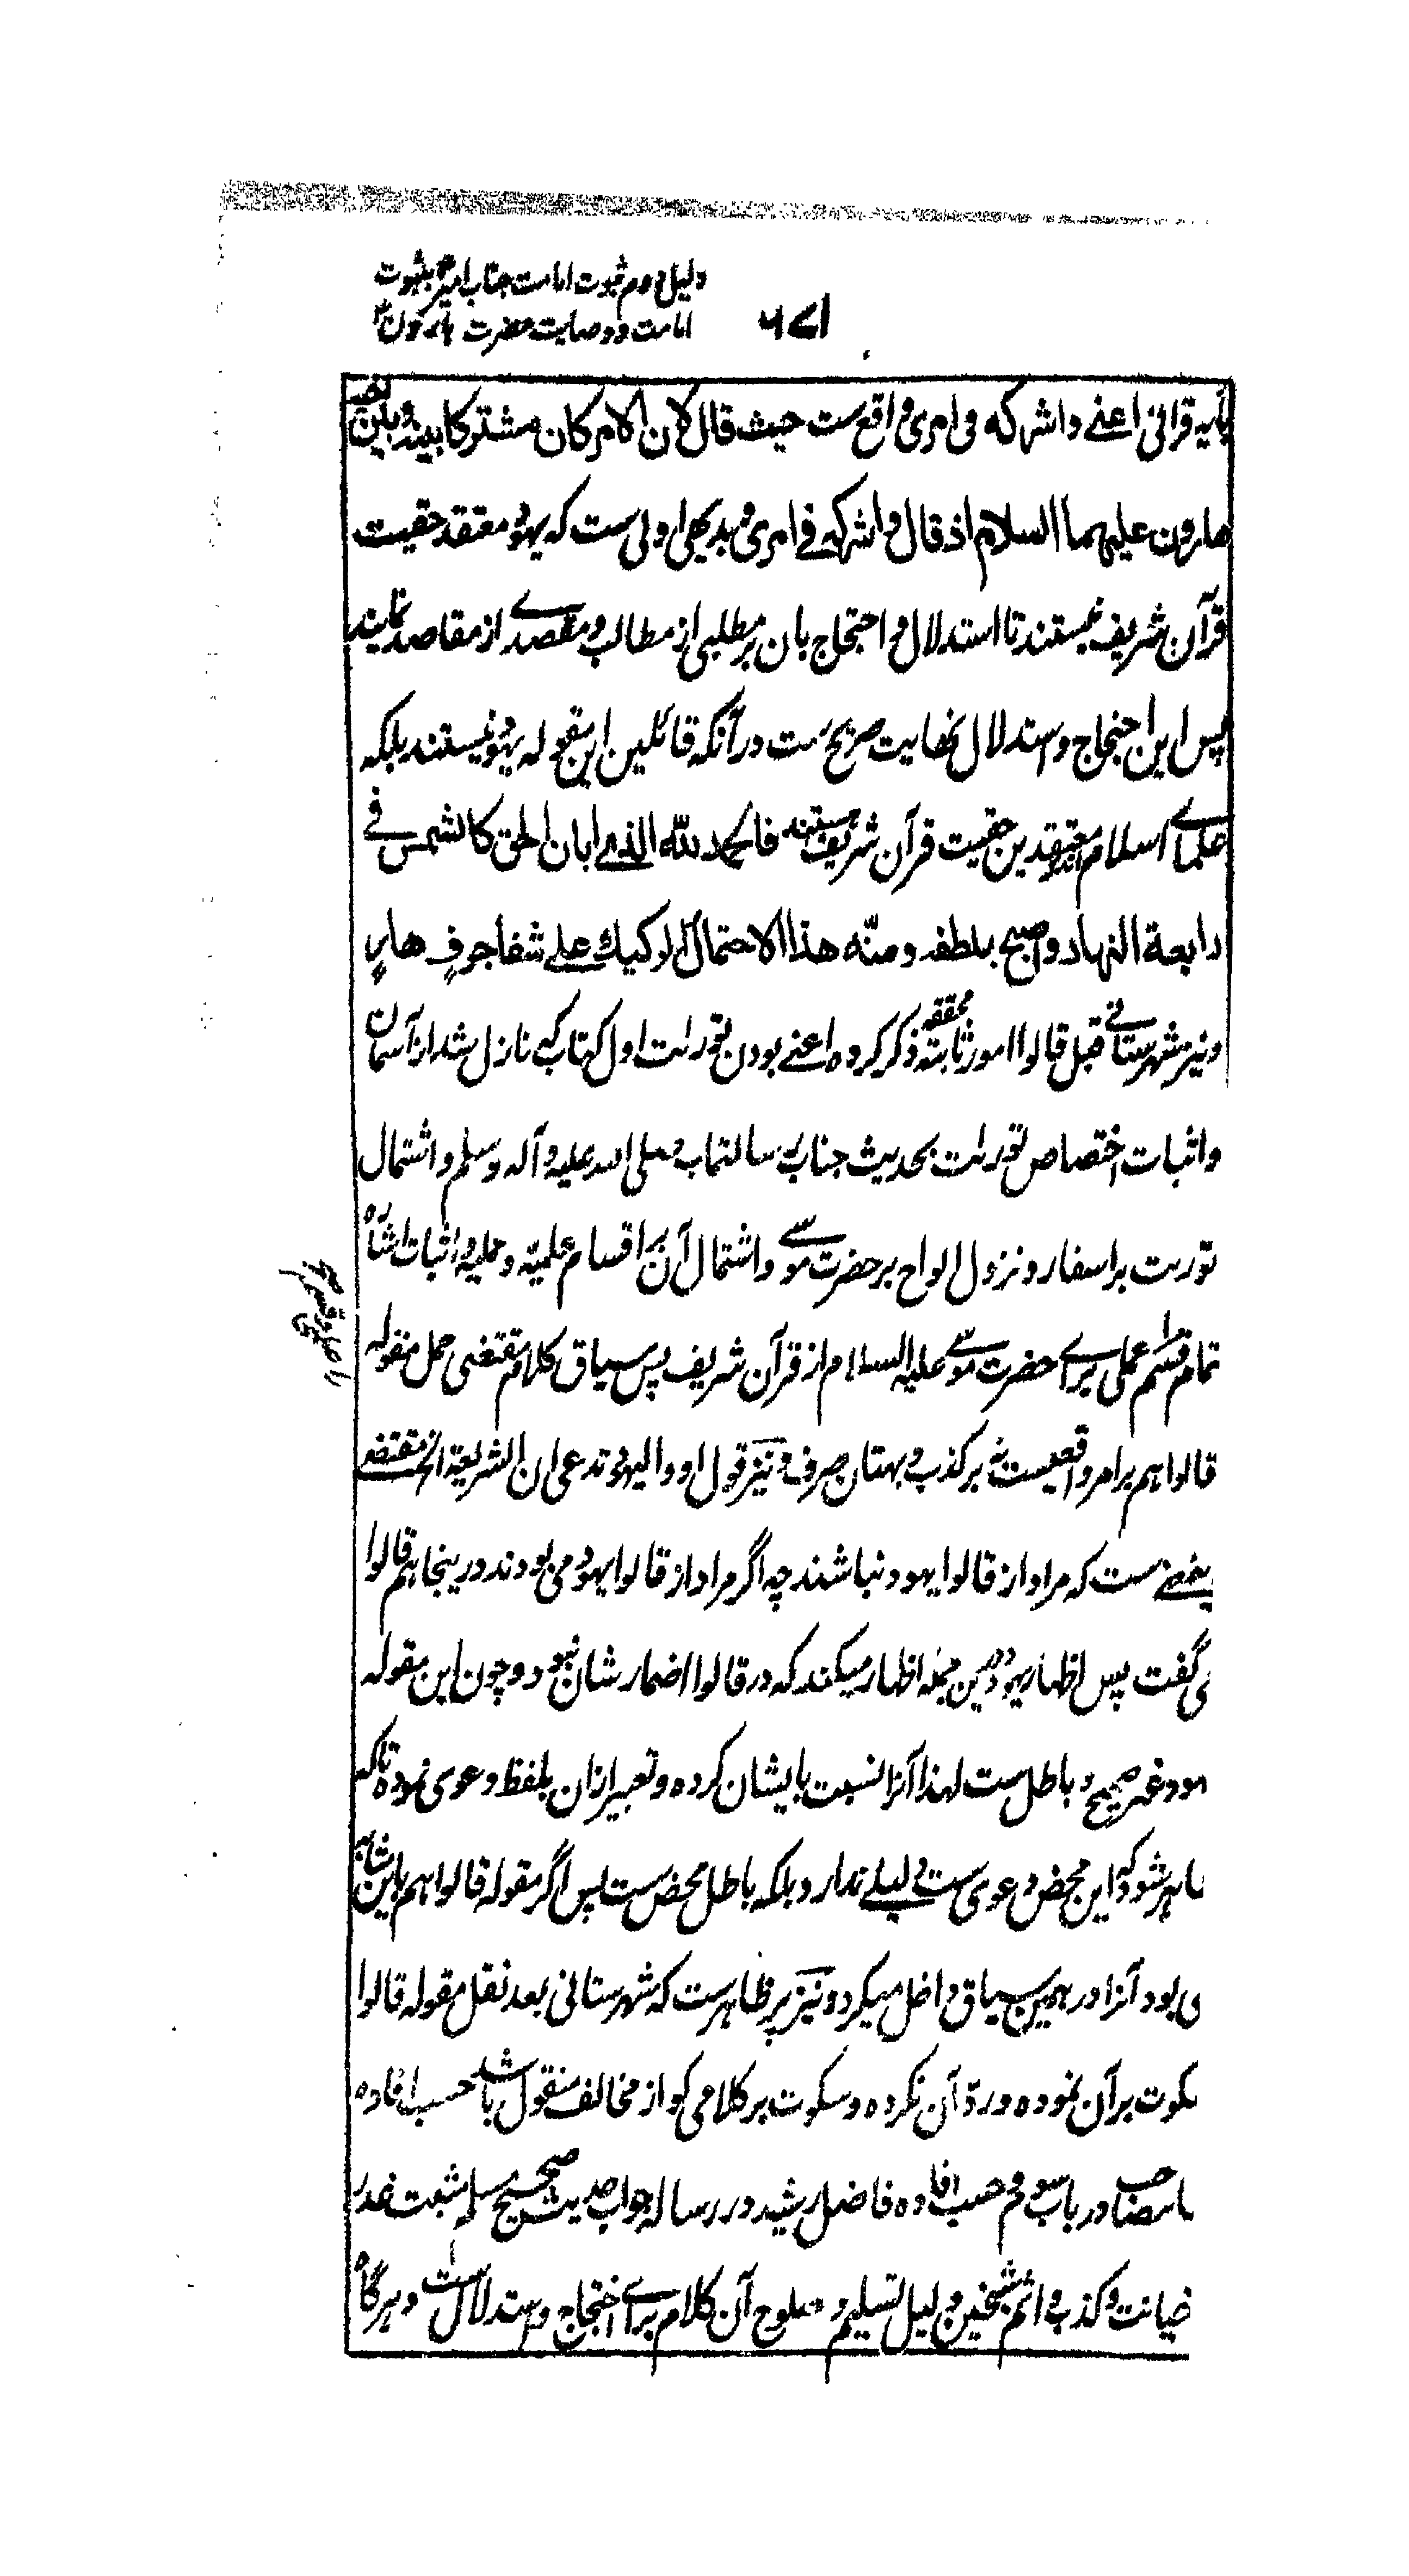 دلیل دوم ثبوت امامت جناب امیرؑ بثبوت
امامت و وصایت حضرت ہارونؑ
۶۷۱
بآیہ قرآنی اعنے واشرکه فی امری واقع ست حیث قال لان الامر کان مشترکا بینه وبین اخیه
هارون علیهما السلام اذ قال واشرکه فے امری و بدیهی اولی ست که یهود معتقد حقیت
قرآن شریف نیستند تا استدلال و احتجاج بان بر مطلبی از مطالب و مقصدے از مقاصد نمایند
پس این احتجاج و استدلال بنهایت صریح ست در آنکه قائلین این مقوله یهود نیستند بلکه
علماے اسلام معتقدین حقیت قرآن شریف هستند فالحمد لله الذے ابان الحق کالشمس فے
رابعة النهار واصبح بلطفه ومنّه هذا الاحتمال الرکیك علے شفا جرفٍ هارٍ
و نیز شهرستانے قبل قالوا امور ثابته محققه ذکر کرده اعنے بودن تورات اول کتاب که نازل شد از آسمان
و اثبات اختصاص تورات بحدیث جناب رسالتماب صلی الله علیه و آله وسلم و اشتمال
توریت بر اسفار و نزول الواح بر حضرت موسے و اشتمال آن بر اقسام علمیّه و عملیه و اثبات اشاره
تمام قسم عملی براے حضرت موسےؑ علیه السلام از قرآن شریف پس سیاق کلام مقتضی حمل مقوله
قالوا هم بر امر واقعیست نه بر کذب و بهتان صرف و نیز قول او و الیهود تدعی ان الشریعة الخ مقتضے
ست که مراد از قالوا یهود نباشند چه اگر مراد از قالوا یهود می بودند در ینجا هم قالوا
ی گفت پس اظهار یهود درین جمله اظهار میکند که در قالوا اضمار شان نبود و چون این مقوله
غیر صحیح و باطل ست لهذا آنرا نسبت بایشان کرده و تعبیر ازان بلفظ دعوی نموده تاکه
شود که این محض دعوی ست دلیلے ندارد بلکه باطل محض ست پس اگر مقوله قالوا هم باین مثابه
ی بود آنرا در همین سیاق داخل میکرد و نیز پر ظاهر ست که شهرستانی بعد نقل مقوله قالوا
کوت بر آن نموده و ردّ آن نکرده و سکوت بر کلامی که از مخالف منقول باشد حسب افاده
در باب سوم و حسب افاده فاضل رشید در رساله جواب حدیث صحیح مسلم مثبت غدر
خیانت و کذب و اثم شیخین دلیل تسلیم و صلوح آن کلام براے احتجاج و استدلال ست و هرگاه